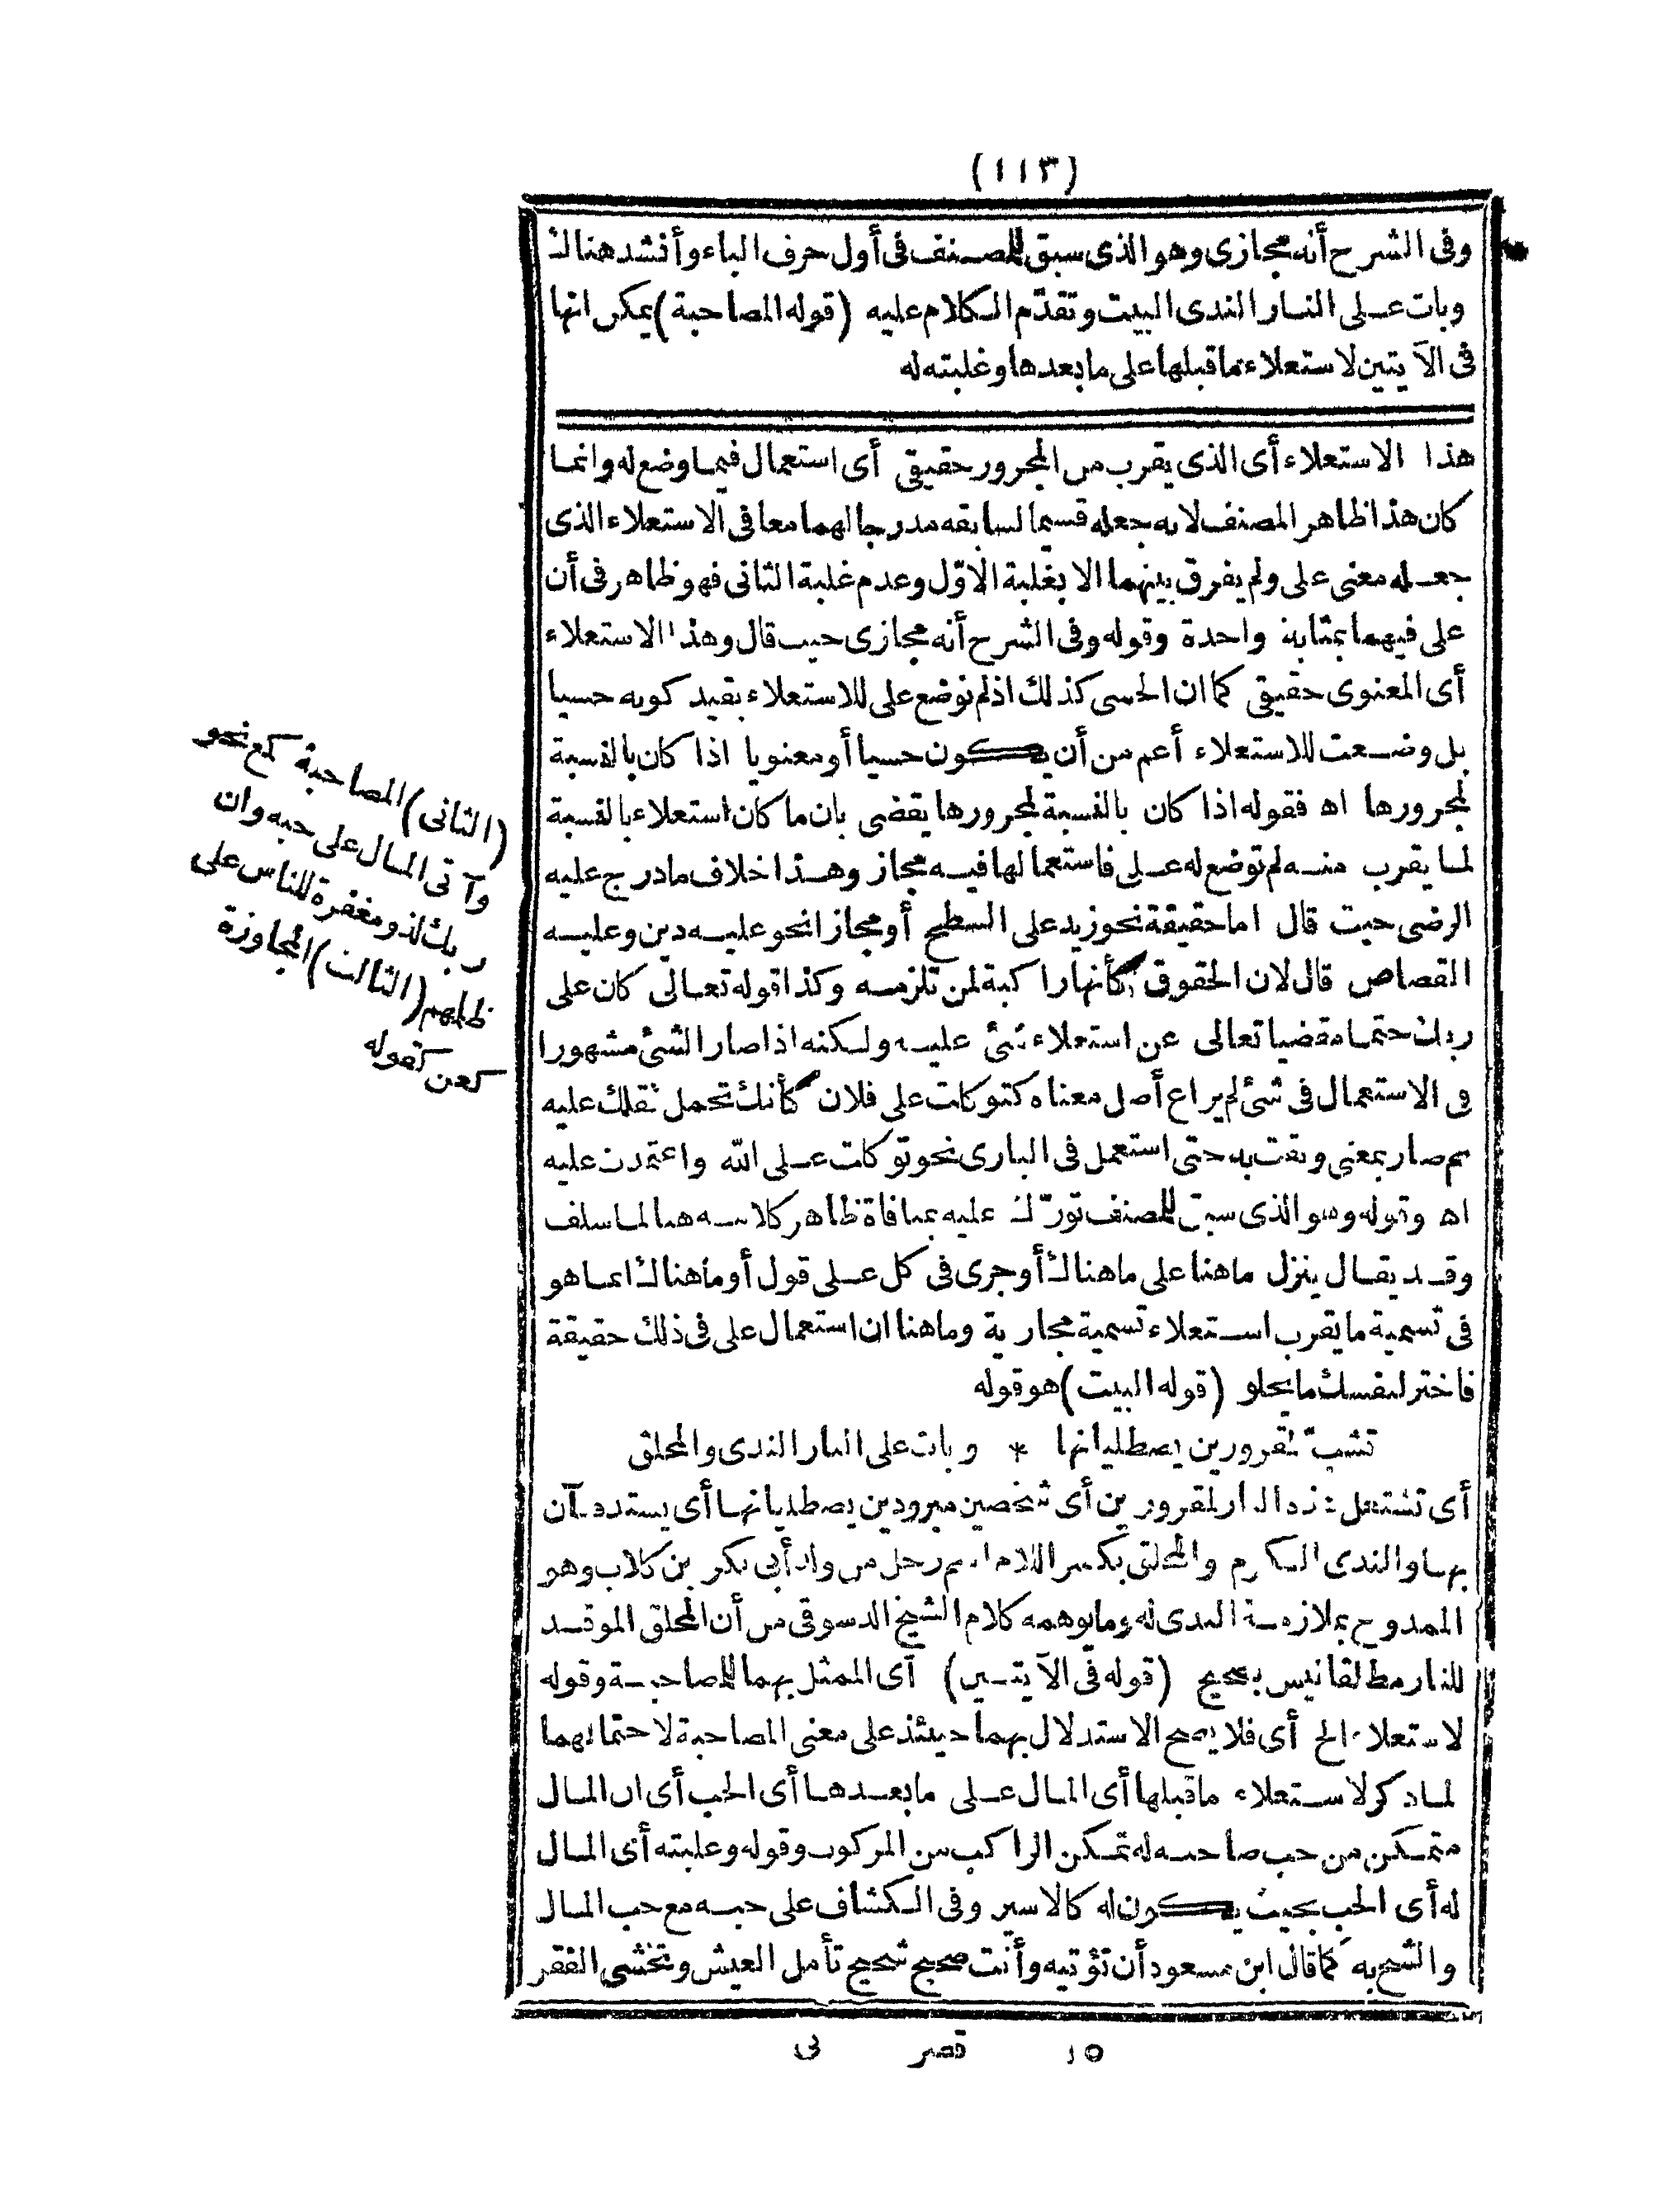 (١١٣)
وفى الشرح أنه مجازى وهو الذى سبق للمصنف فى أول حرف الباء وأنشد هنالك
وبات على النار الندى البيت وتقدّم الكلام عليه (قوله المصاحبة) يمكن انها
فى الآيتين لاستعلاء ما قبلها على ما بعدها وغلبته له
هذا الاستعلاء أى الذى يقرب من المجرور حقيقى أى استعمال فيما وضع له وانما
كان هذا ظاهر المصنف لانه جعله قسيما لسابقه مدرجا لهما معا فى الاستعلاء الذى
جعله معنى على ولم يفرق بينهما الا بغلبة الاوّل وعدم غلبة الثانى فهو ظاهر فى أن
على فيهما بمثابة واحدة وقوله وفى الشرح أنه مجازى حيث قال وهذا الاستعلاء
أى المعنوى حقيقى كما ان الحسى كذلك اذ لم توضع على للاستعلاء بقيد كونه حسيا
بل وضعت للاستعلاء أعم من أن يكون حسيا أو معنويا اذا كان بالنسبة
لمجرورها اه فقوله اذا كان بالنسبة لمجرورها يقضى بان ما كان استعلاء بالنسبة
لما يقرب منه لم توضع له على فاستعمالها فيه مجاز وهذا خلاف ما درج عليه
الرضى حيث قال اما حقيقة نحو زيد على السطح أو مجازا نحو عليه دين وعليه
القصاص قال لان الحقوق كأنها راكبة لمن تلزمه وكذا قوله تعالى كان على
ربك حتما مقضيا تعالى عن استعلاء شئ عليه ولكنه اذا صار الشئ مشهورا
فى الاستعمال فى شئ لم يراع أصل معناه كتوكلت على فلان كأنك تحمل ثقلك عليه
ثم صار بمعنى وثقت به حتى استعمل فى البارى نحو توكلت على الله واعتمدت عليه
اه وقوله وهو الذى سبق للمصنف تورّك عليه بمنافاة ظاهر كلامه هنا لما سلف
وقد يقال ينزل ما هنا على ما هنالك أو جرى فى كل على قول أو ما هنالك انما هو
فى تسمية ما يقرب استعلاء تسمية مجازية وما هنا ان استعمال على فى ذلك حقيقة
فاختر لنفسك ما يحلو (قوله البيت) هو قوله
تشبّ لمقرورين يصطليانها * وبات على النار الندى والمحلق
أى تشتعل هذه النار لمقرورين أى شخصين مبرودين يصطليانها أى يستدفئان
بها والندى الكرم والمحلق بكسر اللام اسم رجل من ولد أبى بكر بن كلاب وهو
الممدوح بملازمة الندى له وما يوهمه كلام الشيخ الدسوقى من أن المحلق الموقد
للنار مطلقا ليس بصحيح (قوله فى الآيتين) أى الممثل بهما للمصاحبة وقوله
لاستعلاء الخ أى فلا يصح الاستدلال بهما حينئذ على معنى المصاحبة لاحتمالهما
لما ذكر لاستعلاء ما قبلها أى المال على ما بعدها أى الحب أى ان المال
متمكن من حب صاحبه له تمكن الراكب من المركوب وقوله وغلبته أى المال
له أى الحب بحيث يكون له كالاسير وفى الكشاف على حبه مع حب المال
والشح به كما قال ابن مسعود أن تؤتيه وأنت صحيح شحيح تأمل العيش وتخشى الفقر
(الثانى) المصاحبة كمع نحو
وآتى المال على حبه وان
ربك لذو مغفرة للناس على
ظلمهم (الثالث) المجاوزة
كعن كقوله
١٥ قصر نى